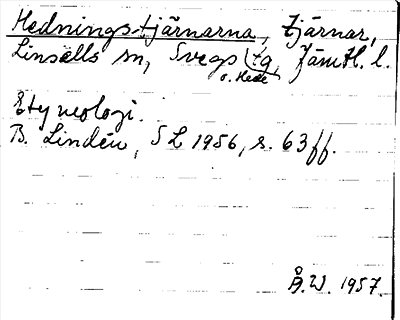 Hednings-tjärnarna, tjärnar,
Linsells sn, Svegs tg, Jämtl. l.
o. Hede
Etymologi.
B. Lindén, SL 1956, s. 63ff.
Å.W. 1957.